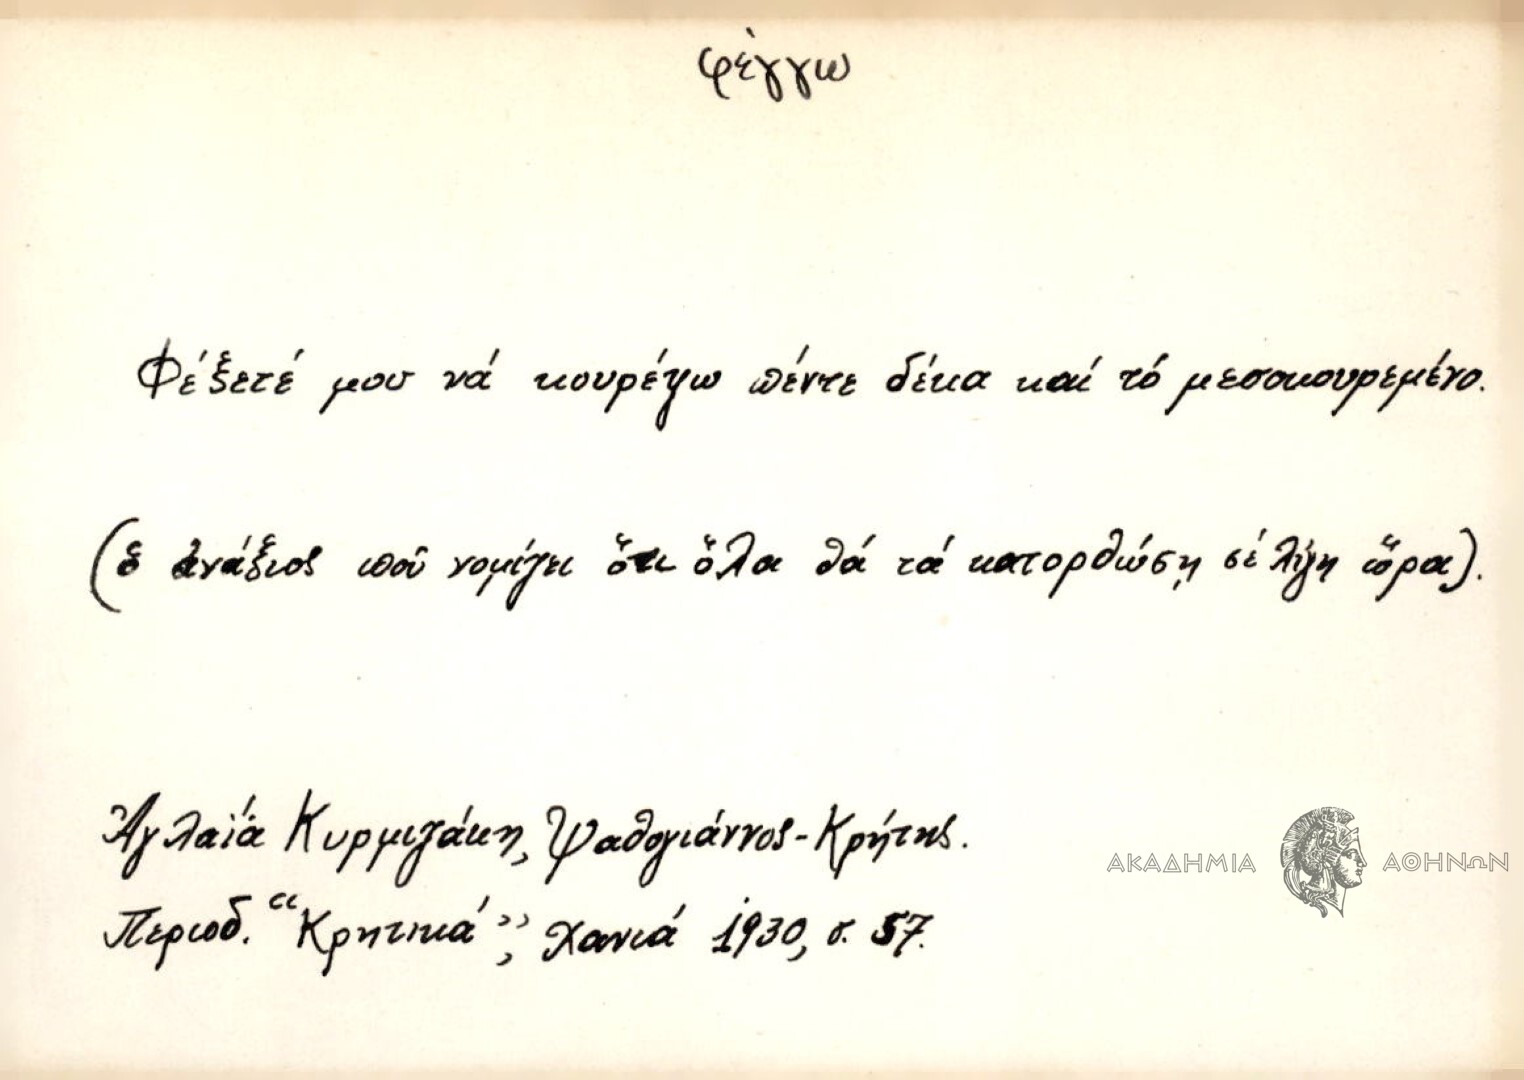 φέγγω
Φέξετέ μου νά κουρέψω πέντε δέκα καί τό μεσοκουρεμένο.
(ὁ ἀνάξιος ποῦ νομίζει ὅτι ὅλα θά τά κατορθώσῃ σέ λίγη ὥρα).
Ἀγλαΐα Κυρμιζάκη, Ψαθογιάννος-Κρήτης.
Περιοδ. “Κρητικά”, Χανιά 1930, σ. 57.
ΑΚΑΔΗΜΙΑ ΑΘΗΝΩΝ